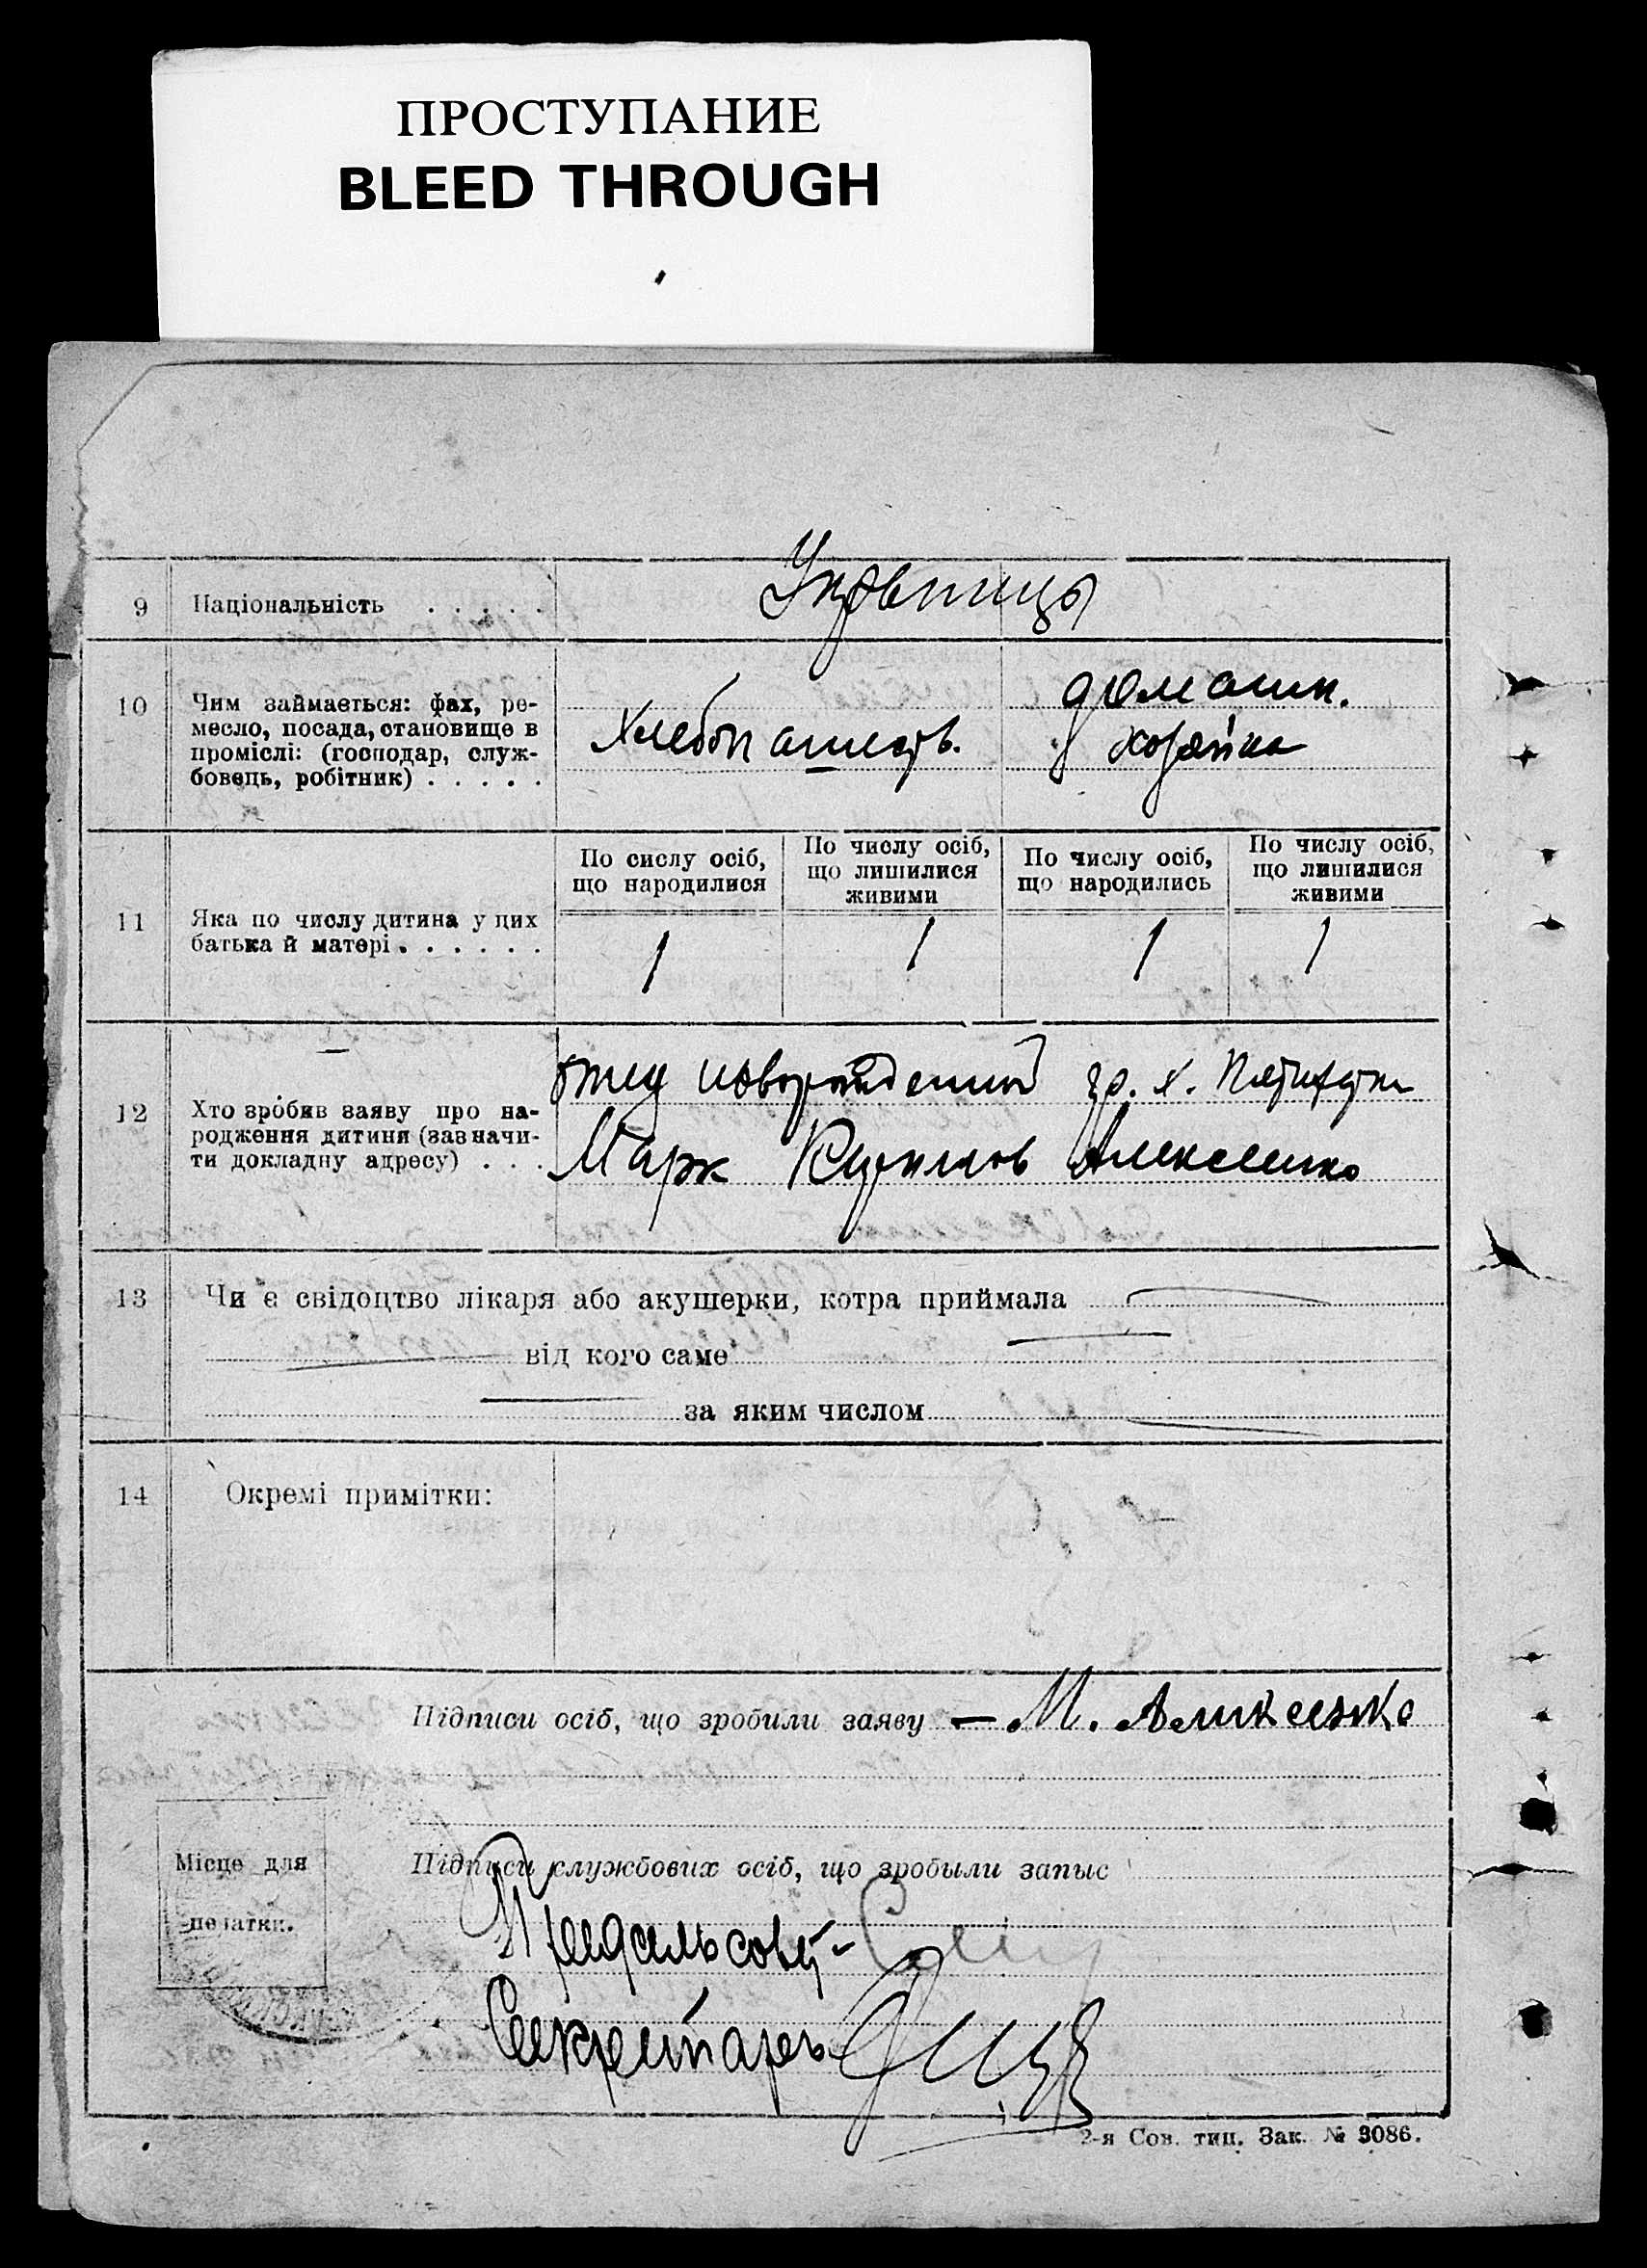 ПРОСТУПАНИЕ
BLEED THROUGH
9 Національність . . . . .
10 Чим займається: фах, ре-
месло, посада, становище в
проміслі: (господар, служ-
бовець, робітник) . . . . .
домашн.
Хлебопашеств.
хозяйка
11 Яка по числу дитина у цих
батька й матері . . . . . .
По сислу осіб,
що народилися
По числу осіб,
що лишилися
живими
По числу осіб,
що народились
По числу осіб,
що лишилися
живими
1 1 1 1
12 Хто зробив заяву про на-
родження дитини (зазначи-
ти докладну адресу) . . .
отец новорожденной гр. х.
Марк Алексеенко
13 Чи є свідоцтво лікаря або акушерки, котра приймала
від кого саме
за яким числом
14 Окремі примітки:
Підписи осіб, що зробили заяву — М. Алексеэнко
Місце для
печатки.
Підписи службових осіб, що зробыли запыс
Предсельсовет-
Секретарь
2-я Сов. тип. Зак. № 3086.